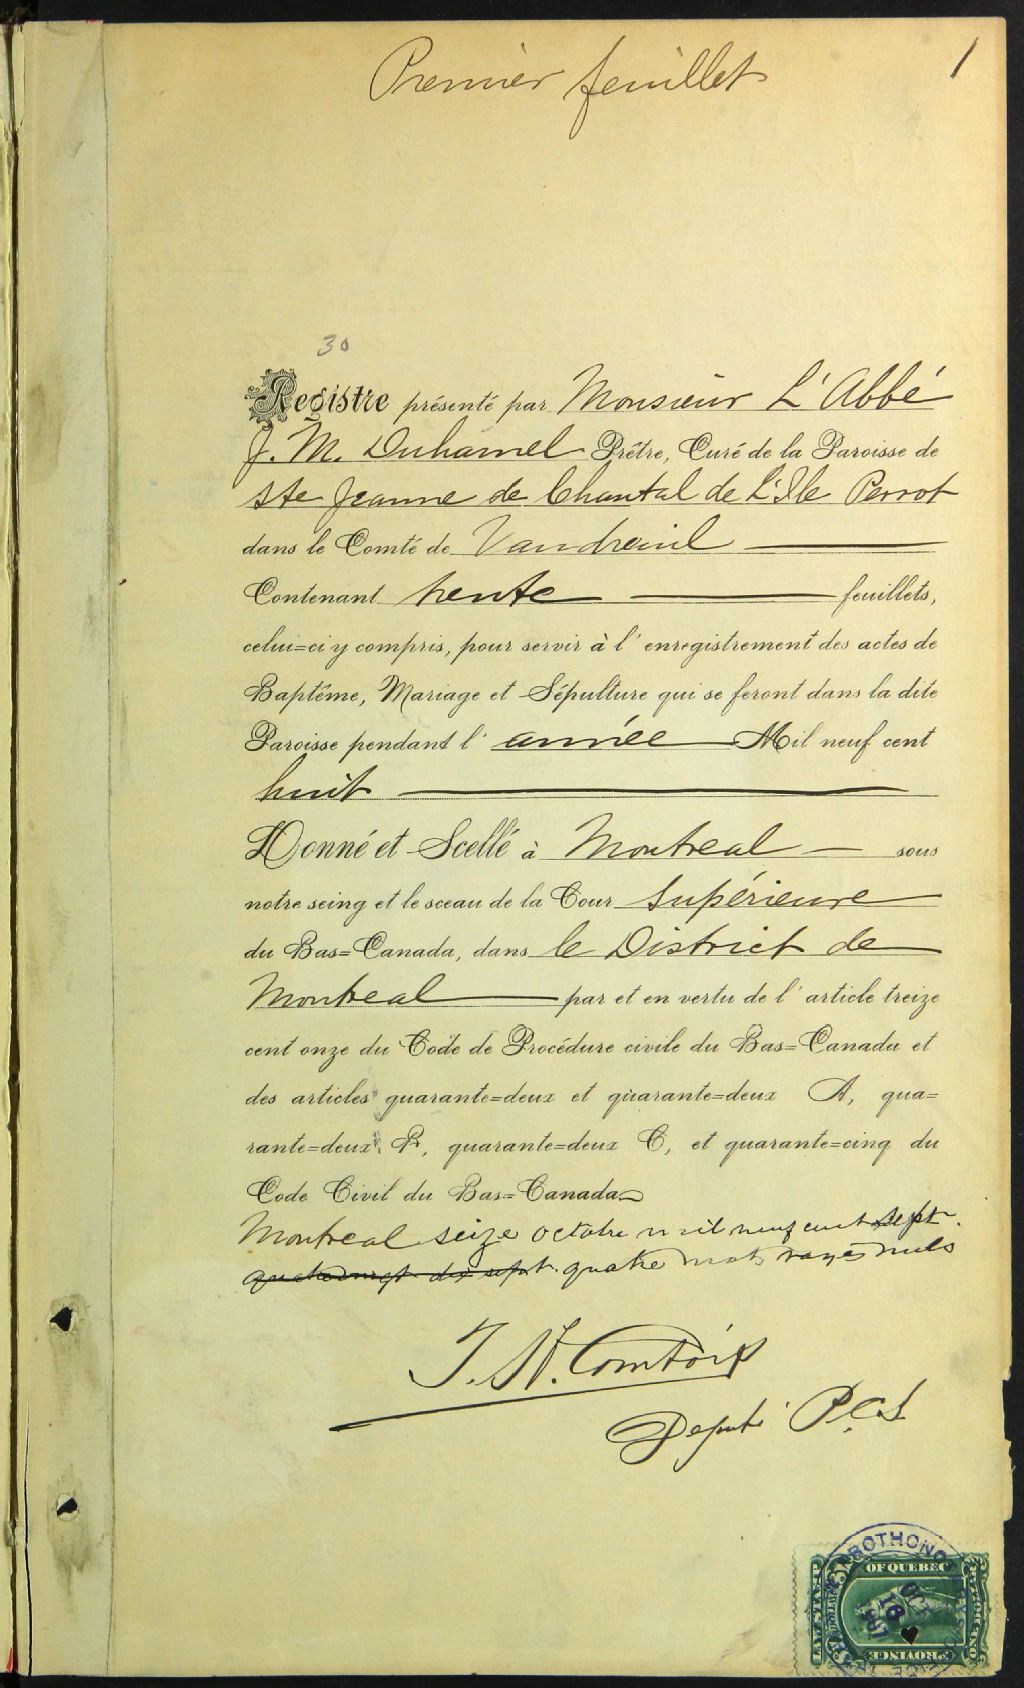 1
Premier feuillet
30
Registre présenté par Monsieur L'Abbé
J. M. Duhamel Prêtre, Curé de la Paroisse de
Ste Jeanne de Chantal de L'Ile Perrot
dans le Comté de Vaudreuil
Contenant trente feuillets,
celui=ci y compris, pour servir à l'enregistrement des actes de
Baptême, Mariage et Sépulture qui se feront dans la dite
Paroisse pendant l'année Mil neuf cent
huit
Donné et Scellé à Montreal sous
notre seing et le sceau de la Cour Supérieure
du Bas=Canada, dans le District de
Montreal par et en vertu de l'article treize
cent onze du Code de Procédure civile du Bas=Canada et
des articles quarante=deux et quarante=deux A, qua=
rante=deux B, quarante=deux C, et quarante=cinq du
Code Civil du Bas=Canada
Montreal seize octobre mil neuf cent sept.
quatrevingt dix sept. quatre mots rayés nuls
J. N. Comtois
Deputé P.C.S.
PROTHONO
OF QUEBEC
LAW STAMP
OCT
18
PROVINCE